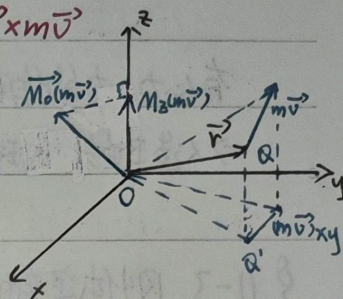 ×m\vec{v}
z
\vec{M_0}(m\vec{v})
M_z(m\vec{v})
m\vec{v}
\vec{r}
Q
O
y
(m\vec{v})xy
Q'
x